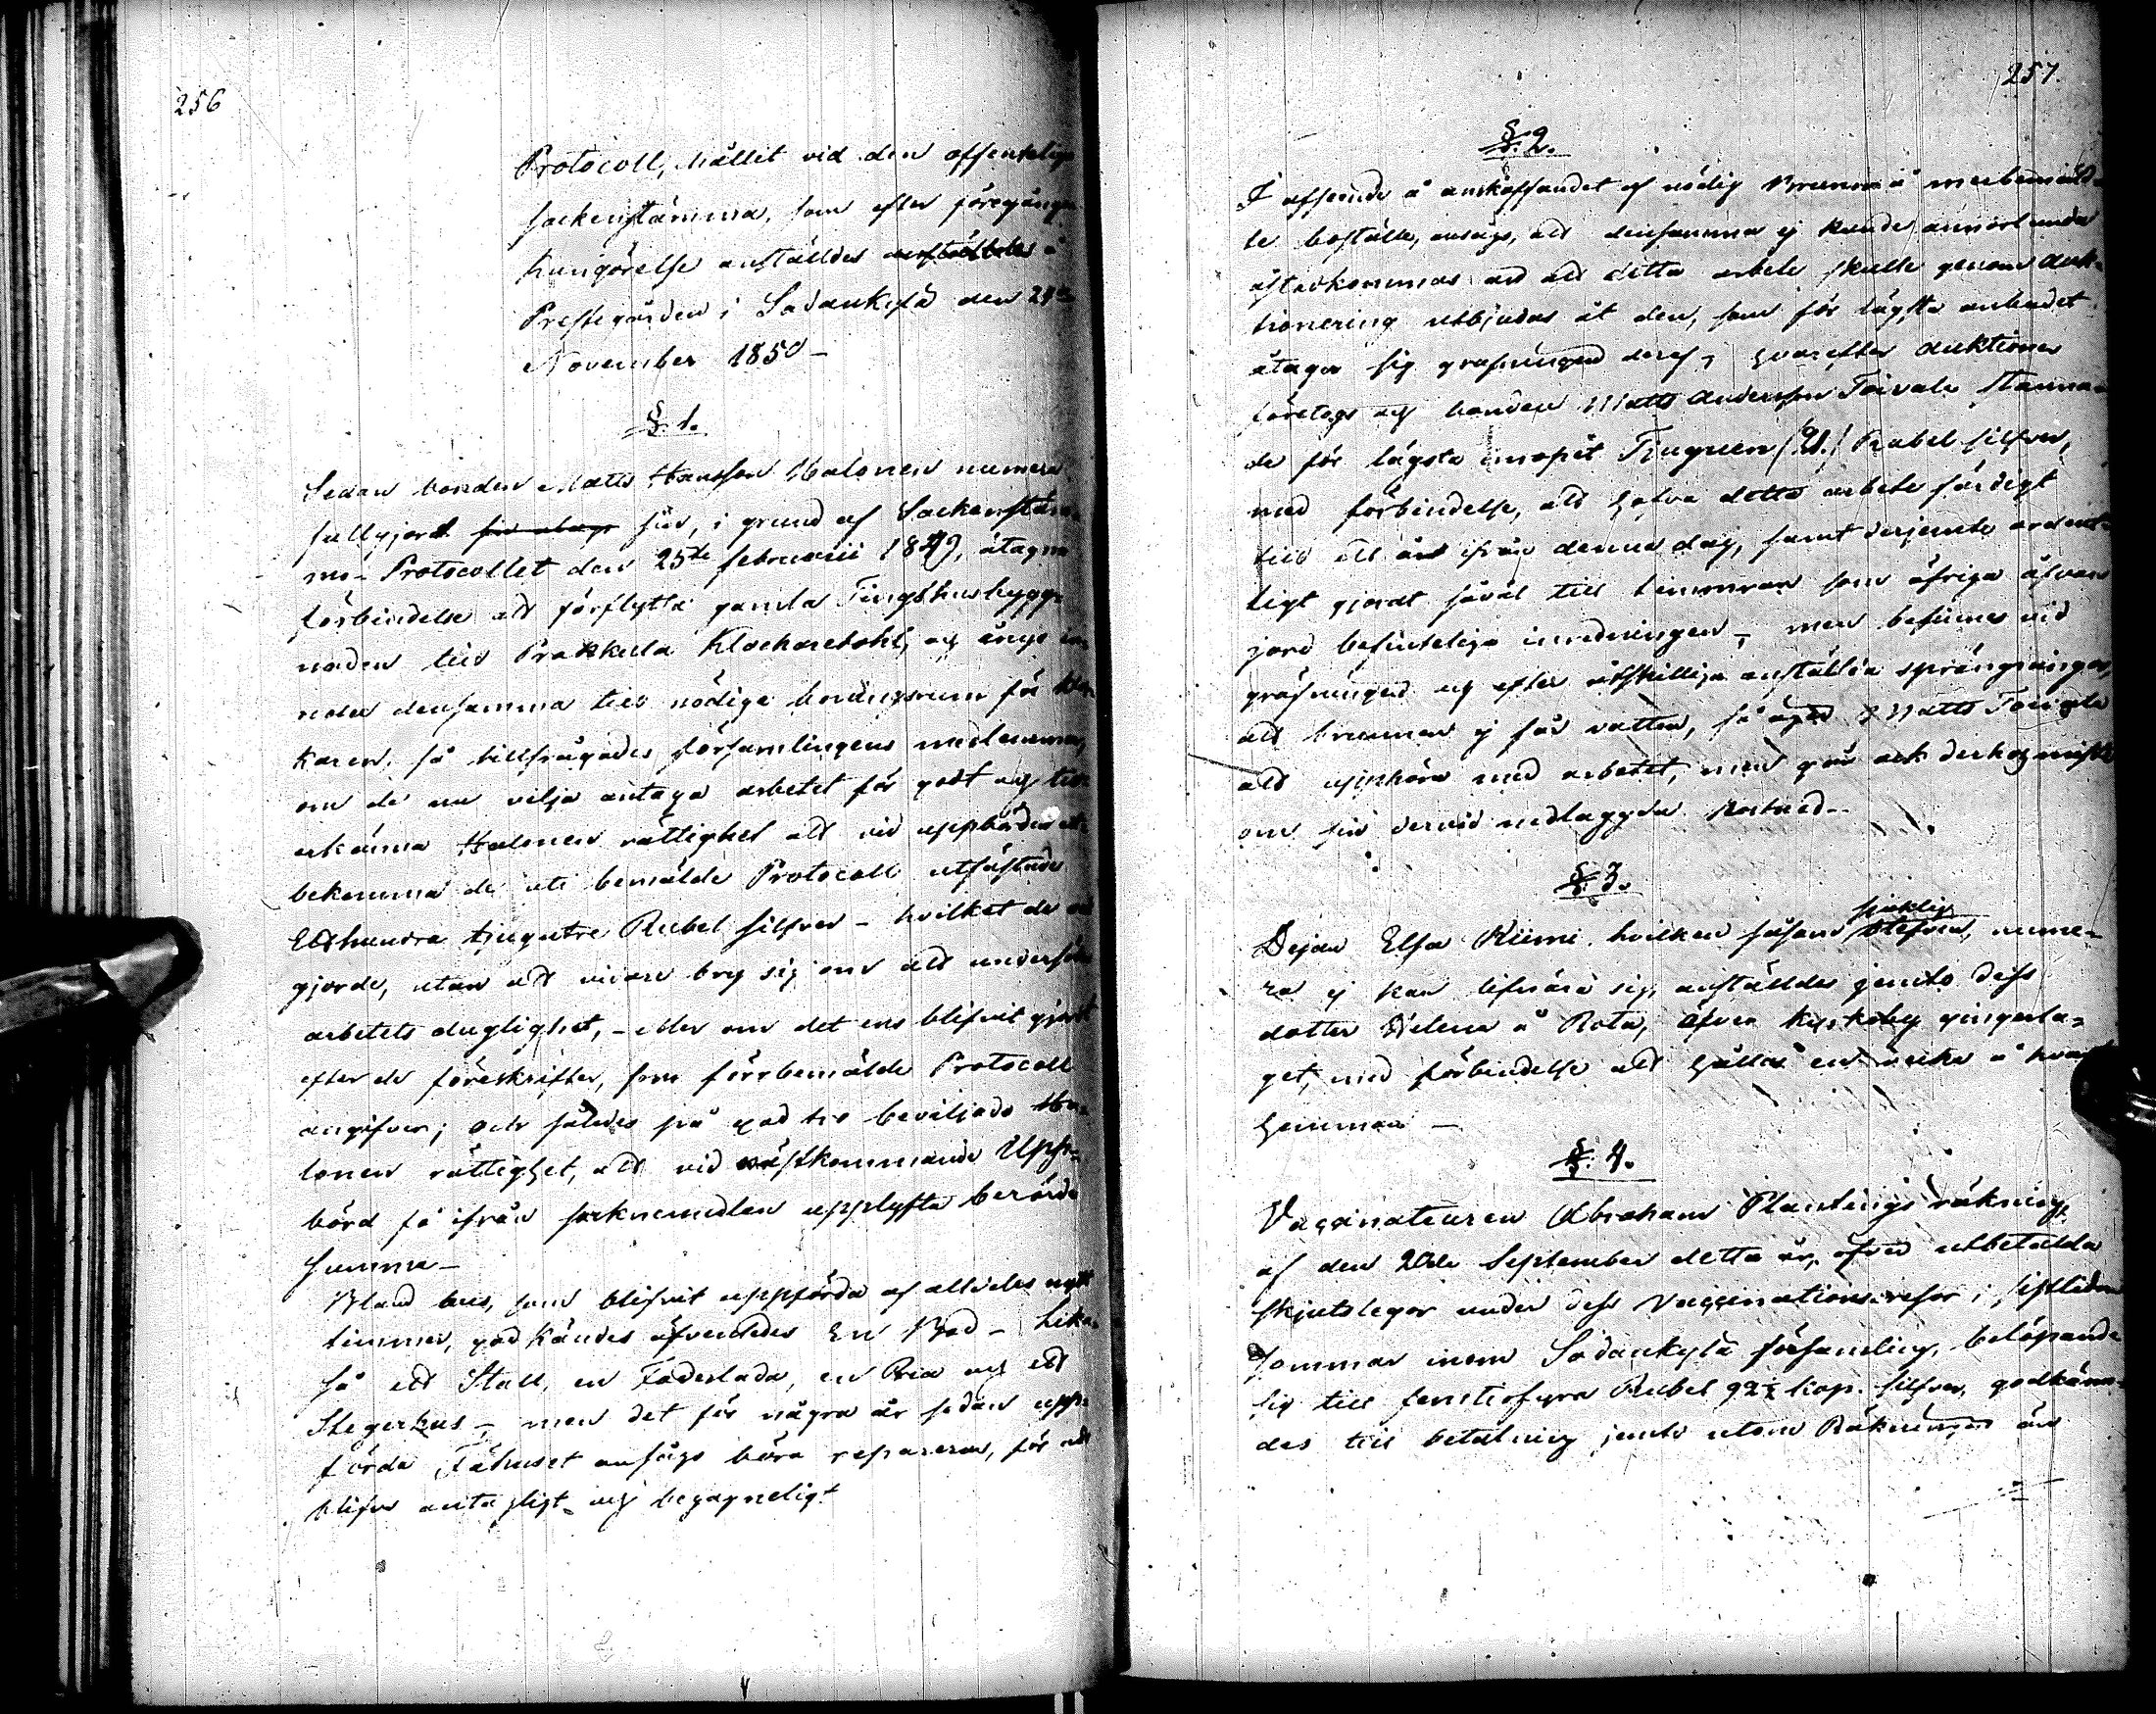 256
Protocoll, hållit vid den offentelige
sockenstämma, som efter föregången
kungörelse anställdes å
Prestegården i Sodankylä den 24de
November 1850 –
§. 1.
Sedan bonden Matts Hansson Halonen numera
fullgjort sin, i grund af Sockenstäm-
mo-Protocollet den 25te februarii 1849, åtagna
förbindelse att förflytta gamla Tingshusbygg-
naden till Prakkula Klockarebohl, och
densamma till nödige boningsrum för Kloc-
karen; så tillfrågades församlingens medlemmar,
om de nu vilja antaga arbetet för godt och till-
erkänna Halonen rättighet att vid uppbörden
bekomma de uti bemälde Protocoll utfästade
Etthundra tjugutre Rubel silfver – hvilket de
gjorde, utan att vidare bry sig om att undersöka
arbetets duglighet, – eller om det ens blifvit gjordt
efter de föreskrifter, som förrbemälde Protocoll
angifver; och således på god tro beviljade Ha-
lonen rättighet, att vid nästkommande Upp-
börd få ifrån socknemedlen upplyfta berörde
summa –
Bland hus, som blifvit uppförda af alldeles nytt
timmer, godkändes äfvenledes En Bod – Lika-
så ett Stall, en Foderlada, en Ria och ett
Stegerhus –, men det för några år sedan upp-
förda Fähuset ansågs böra repareras, för att
blifva antagligt och begagneligt
257.
§. 2.
I afseende å anskaffandet af nödig Brunn å merbemäld-
te boställe, ansågs, att densamma ej kunde annorlunda
åstadkommas än att detta arbete skulle genom Auk-
tionering utbjudas åt den, som för lägsta anbudet
åtager sig gräfningen deraf, hvarefter Auktionen
företogs och bonden Matts Andersson Toivola stanna-
de för lägsta inropet Tjuguen /21./ Rubel silfver,
med förbindelse, att hafva detta arbete färdigt
till ett år ifrån denna dag, samt derjemte ordent-
ligt gjordt såväl till timmran som öfriga ofvan
jord befintelige inredningen –, men befinnes vid
gräfningen och efter åtskillige anställda sprängningar,
att brunnen ej får vatten, så äger Matts Toivola
att upphöra med arbetet, men går ock derhos miste
om sin dervid nedlaggda kostnad –
§. 3.
Dejan Elsa Kiimi hvilken såsom
sjuklig
nume-
ra ej kan lifnära sig, anställdes jemte dess
dotter Helena å Rota, öfver Kyrkoby gingerla-
get, med förbindelse att hålla en vecka å hvart
hemman –
§. 4.
Vaccinateuren Abraham Plantings räkning
af den 20de September detta år, öfver utbetalda
skjutslegor under dess Vaccinationsresor i sistledne
sommar inom Sodankylä församling, belöpande
sig till femtiofyra Rubel 92½ kop. silfver, godkänn-
des till betalning jemte utom Räkningen än